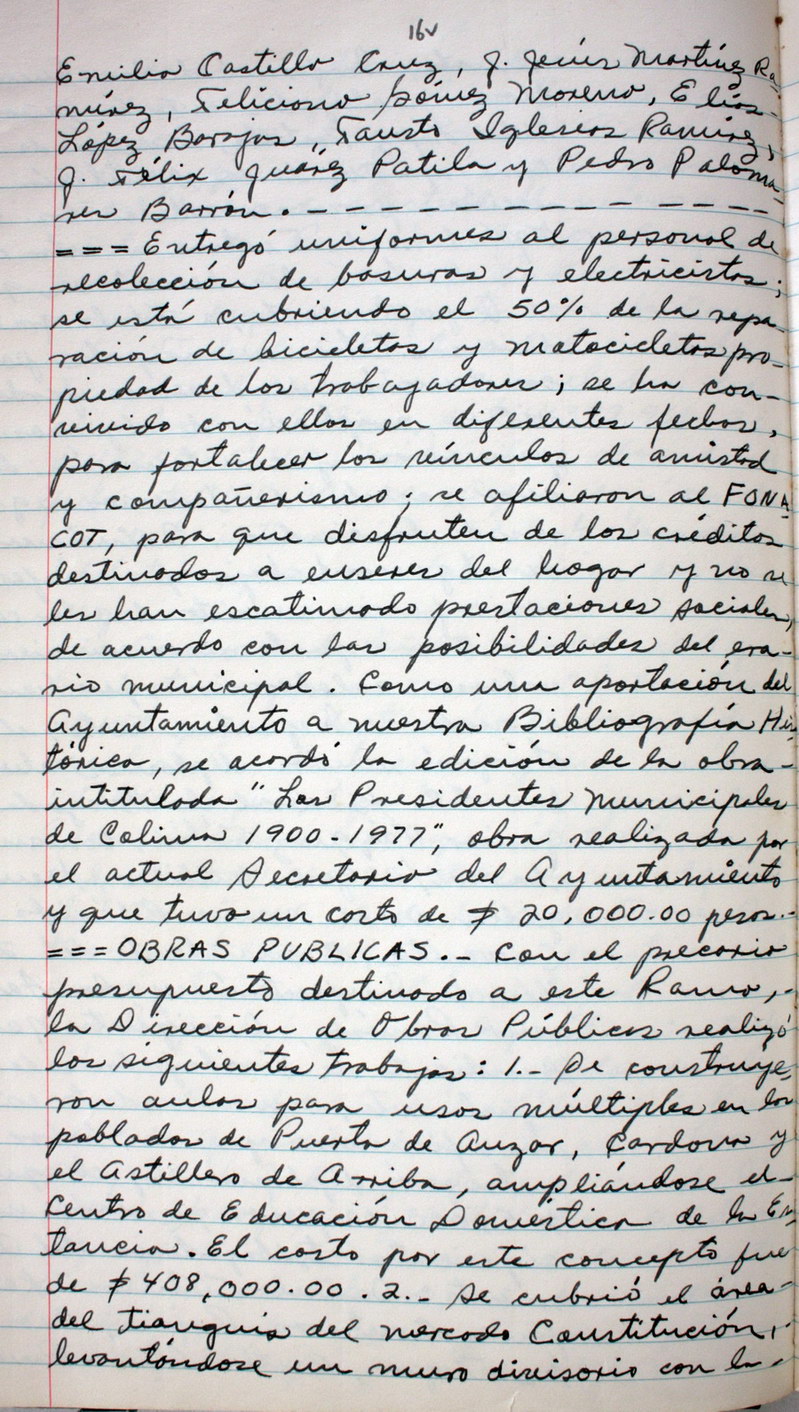 16v
Emilio Castillo Cruz, J. Jesús Martínez Ra-
mírez, Feliciano Gómez Moreno, Elías
López Barajas, Fausto Iglesias Ramírez,
J. Félix Juárez Patila y Pedro Paloma-
res Barrón. - - - - - - - - - - - -
=== Entregó uniformes al personal de
recolección de basuras y electricistas;
se está cubriendo el 50% de la repa-
ración de bicicletas y motocicletas pro-
piedad de los trabajadores; se ha con-
vivido con ellos en diferentes fechas,
para fortalecer los vínculos de amistad
y compañerismo; se afiliaron al FONA-
COT, para que disfruten de los créditos
destinados a enseres del hogar y no se
les han escatimado prestaciones sociales,
de acuerdo con las posibilidades del era-
rio municipal. Como una aportación del
Ayuntamiento a nuestra Bibliografía His-
tórica, se acordó la edición de la obra-
intitulada "Los Presidentes Municipales
de Colima 1900-1977", obra realizada por
el actual Secretario del Ayuntamiento
y que tuvo un costo de $ 20,000.00 pesos.-
=== OBRAS PUBLICAS.- Con el precario
presupuesto destinado a este Ramo,-
la Dirección de Obras Públicas realizó
los siguientes trabajos: 1.- Se construye-
ron aulas para usos múltiples en los
poblados de Puerta de Anzar, Cardona y
el Astillero de Arriba, ampliándose el-
Centro de Educación Doméstica de la Es-
tancia. El costo por este concepto fue
de $ 408,000.00. 2.- Se cubrió el área-
del tianguis del mercado Constitución,-
levantándose un muro divisorio con la-